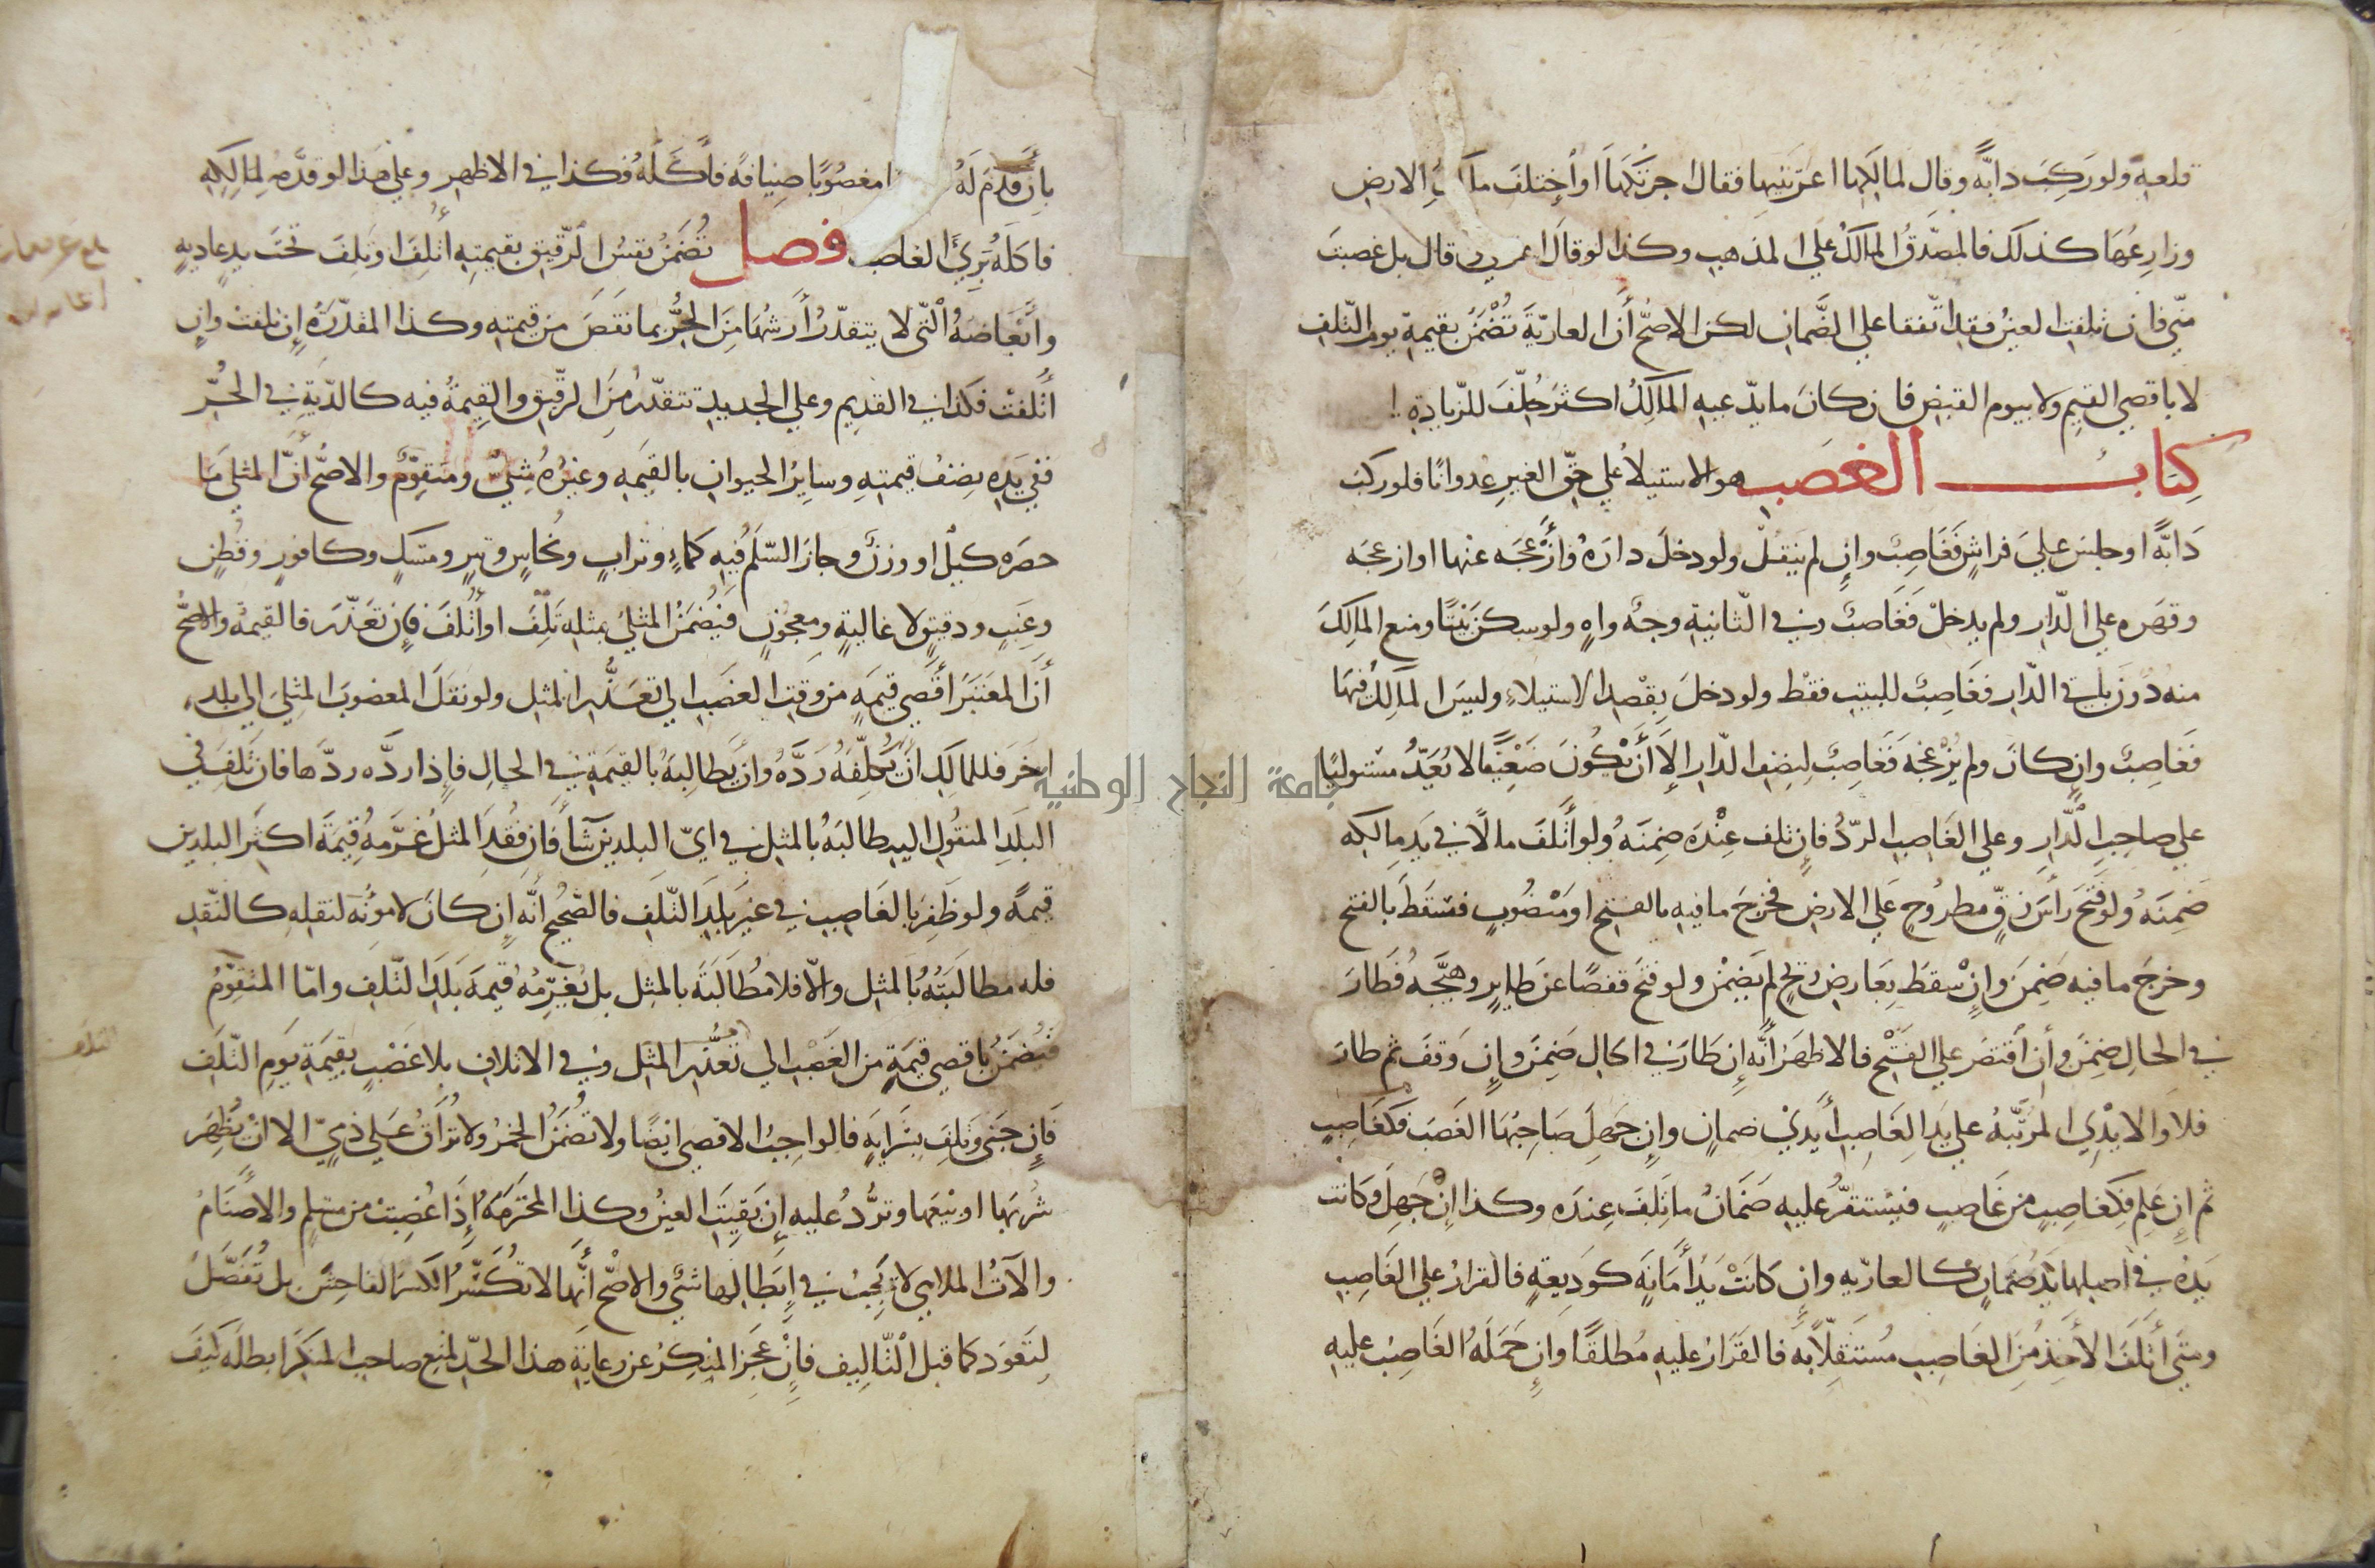 قلعه ولو ركب دابّةً وقال لمالكها اعرتنيها فقال اجرتكها او اختلف مالك الارض
وزارعها كذلك فالمصدّق المالك على المذهب وكذا لو قال اعرتني وقال بل غصبت
منّي فان تلفت العين فقد اتّفقا علي الضّمان لكن الاصحّ أن العاريّة تُضْمَنُ بقيمة يوم التّلف
لا باقصي القيم ولا بيوم القبض فان كان ما يدّعيه المالك اكثر حُلّف للزّيادة
كتاب الغصب هو الاستيلا علي حقّ الغير عدوانًا فلو ركب
دَابّةً او جلس علي فراش فغاصبٌ وإن لم ينقل ولو دخل داره وأزعجه عنها او ازعجه
وقهره علي الدّار ولم يدخل فغاصبٌ وفي الثّانية وجهٌ واهٍ ولو سكن بيتًا ومنع المالك
منه دون باقي الدّار فغاصبٌ للبيت فقط ولو دخل بقصد الاستيلاء وليس المالك فيها
فغاصبٌ وإن كان ولم يُزعجه فغاصبٌ لنصف الدّار إلا أن يكون ضعيفًا لا يُعَدّ مستوليًا
علي صاحب الدّار وعلي الغاصب الردّ فإن تلف عنده ضمنه ولو أتلف مالًا في يد مالكه
ضمنه ولو فتح رأس زقٍّ مطروحٍ علي الارض فخرج ما فيه بالفتح او منصوبٍ فسقط بالفتح
وخرج ما فيه ضمن وإن سقط بعارض ريحٍ لم يضمن ولو فتح قفصًا عن طايرٍ وهيّجه فطار
في الحال ضمن وأن اقتصر علي الفتح فالاظهر أنّه إن طار في الحال ضمن وإن وقف ثم طار
فلا والايدي المرتّبة علي يد الغاصب أيدي ضمان وإن جهل صاحبها الغصب فكغاصب
ثم ان علم فكغاصب من غاصب فيستقرّ عليه ضمانُ ما تلف عنده وكذا إن جهل وكانت
يده في اصلها يد ضمان كالعاريّه وإن كانت يد أمانة كوديعة فالقرار علي الغاصب
ومتي أتلف الآخذ من الغاصب مستقلًّا به فالقرار عليه مطلقًا وإن حمله الغاصب عليه
بأن قدّم له مغصوبًا ضيافةً فأكله فكذا في الاظهر وعلي هذا لو قدّمه لمالكه
فاكله بَرِئَ الغاصب فصل تُضمَنُ نفس الرّقيق بقيمته أُتلف او تَلِف تحت يد عاديةٍ
وأبعاضه التّي لا يتقدّر أرشها من الحُرّ بما نقص من قيمته وكذا المقدّرة إن تلفت وان
أُتلفت فكذا في القديم وعلي الجديد تتقدّر من الرّقيق والقيمة فيه كالدّية في الحُرّ
ففي يده نصف قيمته وساير الحيوان بالقيمه وغيره مِثليٌّ ومتقوّمٌ والاصحّ أنّ المثلي ما
حصره كيلٌ او وزنٌ وجاز السّلم فيه كماءٍ وترابٍ ونُحاسٍ وتبرٍ ومسكٍ وكافورٍ وقُطنٍ
وعنبٍ ودقيقٍ لا غاليةٍ ومعجونٍ فيُضمَنُ المثليّ بمثله تَلِفَ او أُتلف فإن تعذّر فالقيمة والاصحّ
أن المعتبر أقصي قيمه من وقت الغصب إلي تعذّر المثل ولو نقل المغصوب المثلي إلي بلد
اخر فللمالك أن يُكلّفه ردّه وان يُطالبه بالقيمة في الحال فإذا ردّه ردّها فان تلف في
البلد المنقول اليه طالبه بالمثل في ايّ البلدين شآ فان فُقد المثل غرّمه قيمة اكثر البلدين
قيمةً ولو ظفر بالغاصب في غير بلد التّلف فالصّحيح أنّه إن كان لا مونة لنقله كالنّقد
فله مطالبته بالمثل والّا فلا مُطالبة بالمثل بل يُغرّمه قيمة بلد التّلف وامّا المتقوّم
فيُضمَنُ باقصي قيمه من الغصب الي تعذّر المثل وفي الاتلاف بلا غصب بقيمة يوم التّلف
فإن جني وتلف بسرايه فالواجب الاقصي ايضًا ولا تُضمنُ الخمرُ ولا تُراقُ علي ذميّ الا ان يُظهر
شربها او بيعها وتُردّ عليه إن بقيت العين وكذا المحترمة إذا غُصِبت من مسلم والاصنام
والآت الملاهي لا يجب في إبطالها شيٌ والاصحّ أنّها لا تُكسّر الكسر الفاحش بل تُفصّل
لتعود كما قبل التّاليف فإن عجز المنكر عن رعاية هذا الحدّ لمنع صاحب المنكر ابطله كيف
التلف
جامعة النجاح الوطنية